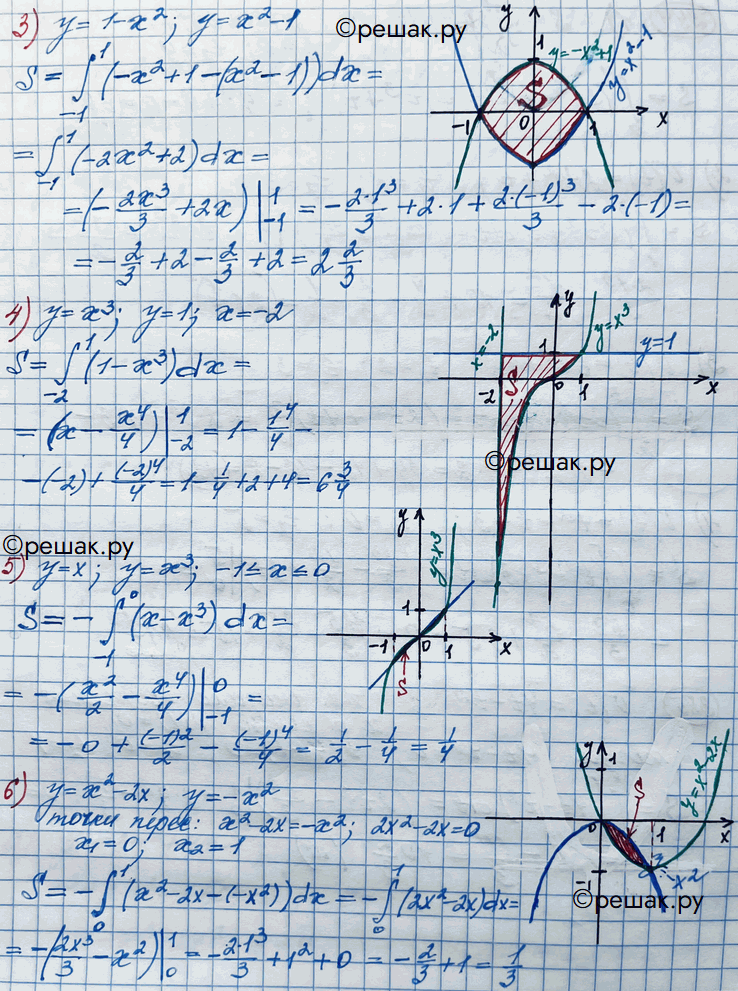 3) y = 1 - x²; y = x² - 1
©решак.ру
S = ∫₋₁¹ (-x² + 1 - (x² - 1)) dx =
= ∫₋₁¹ (-2x² + 2) dx =
= (-2x³/3 + 2x) |₋₁¹ = -2·1³/3 + 2·1 + 2·(-1)³/3 - 2·(-1) =
= -2/3 + 2 - 2/3 + 2 = 2 2/3
y
1
y = -x² + 1
y = x² - 1
S
-1
0
1
x
4) y = x³; y = 1; x = -2
S = ∫₋₂¹ (1 - x³) dx =
= (x - x⁴/4) |₋₂¹ = 1 - 1⁴/4 -
-(-2) + (-2)⁴/4 = 1 - 1/4 + 2 + 4 = 6 3/4
y
x = -2
1
y = x³
y = 1
S
-2
0
1
x
©решак.ру
©решак.ру
5) y = x; y = x³; -1 ≤ x ≤ 0
S = - ∫₋₁⁰ (x - x³) dx =
= -(x²/2 - x⁴/4) |₋₁⁰ =
= -0 + (-1)²/2 - (-1)⁴/4 = 1/2 - 1/4 = 1/4
y
y = x³
1
-1
0
1
x
S
6) y = x² - 2x; y = -x²
точки перес: x² - 2x = -x²; 2x² - 2x = 0
x₁ = 0; x₂ = 1
S = - ∫₀¹ (x² - 2x - (-x²)) dx = - ∫₀¹ (2x² - 2x) dx =
= -(2x³/3 - x²) |₀¹ = -2·1³/3 + 1² + 0 = -2/3 + 1 = 1/3
y
1
S
y = x² - 2x
0
1
x
-1
y = -x²
©решак.ру